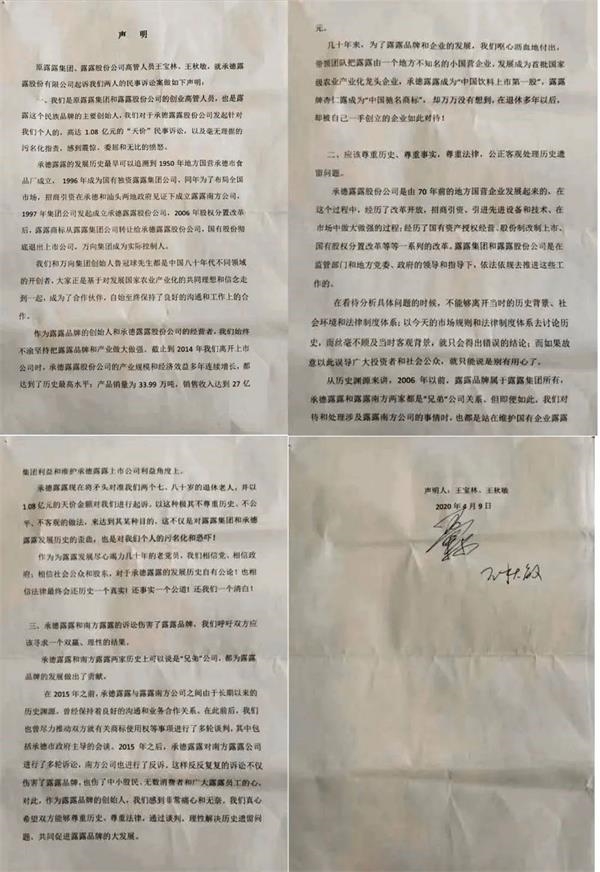 声 明
原露露集团、露露股份公司高管人员王宝林、王秋敏，就承德露
露股份有限公司起诉我们两人的民事诉讼案做如下声明：
一、我们是原露露集团和露露股份公司的创业高管人员，也是露
露这个民族品牌的主要创始人，我们对于承德露露股份公司发起针对
我们个人的，高达 1.08 亿元的“天价”民事诉讼，以及毫无理据的
污名化指责，感到震惊、委屈和无比的愤怒。
承德露露的发展历史最早可以追溯到 1950 年地方国营承德市食
品厂成立， 1996 年成为国有独资露露集团公司，同年为了布局全国
市场，招商引资在承德和汕头两地政府见证下成立露露南方公司，
1997 年集团公司发起成立承德露露股份公司，2006 年股权分置改革
后，露露商标从露露集团公司转让给承德露露股份公司，国有股份彻
底退出上市公司，万向集团成为实际控制人。
我们和万向集团创始人鲁冠球先生都是中国八十年代不同领域
的开创者，大家正是基于对发展国家农业产业化的共同理想和信念走
到一起，成为了合作伙伴，自始至终保持了良好的沟通和工作上的合
作。
作为露露品牌的创始人和承德露露股份公司的经营者，我们始终
不渝坚持把露露品牌和产业做大做强。截止到 2014 年我们离开上市
公司时，承德露露股份公司的产业规模和经济效益多年连续增长，都
达到了历史最高水平：产品销量为 33.99 万吨，销售收入达到 27 亿
元。
几十年来，为了露露品牌和企业的发展，我们呕心沥血地付出，
带领团队把露露由一个地方不知名的小国营企业，发展成为首批国家
级农业产业化龙头企业，承德露露成为“中国饮料上市第一股”，露露
牌杏仁露成为“中国驰名商标”，却万万没有想到，在退休多年以后，
却被自己一手创立的企业如此对待！
二、应该尊重历史、尊重事实，尊重法律，公正客观处理历史遗
留问题。
承德露露股份公司是由 70 年前的地方国营企业发展起来的，在
这个过程中，经历了改革开放，招商引资，引进先进设备和技术、在
市场中做大做强的过程；经历了国有资产授权经营、股份制改制上市、
国有股权分置改革等等一系列的改革。露露集团和露露股份公司是在
监管部门和地方党委、政府的领导和指导下，依法依规去推进这些工
作的。
在看待分析具体问题的时候，不能够离开当时的历史背景、社
会环境和法律制度体系；以今天的市场规则和法律制度体系去讨论历
史，而丝毫不顾及当时客观背景，就只会得出错误的结论；而如果故
意以此误导广大投资者和社会公众，就只能说是别有用心了。
从历史渊源来讲，2006 年以前，露露品牌属于露露集团所有，
承德露露和露露南方两家都是“兄弟”公司关系。但即便如此，我们对
待和处理涉及露露南方公司的事情时，也都是站在维护国有企业露露
集团利益和维护承德露露上市公司利益角度上。
承德露露现在将矛头对准我们两个七、八十岁的退休老人，并以
1.08 亿元的天价金额对我们进行起诉，以这种极其不尊重历史、不公
平、不客观的做法，来达到其某种目的。这不仅是对露露集团和承德
露露发展历史的歪曲，也是对我们个人的污名化和恐吓！
作为为露露发展尽心竭力几十年的老党员，我们相信党，相信政
府；相信社会公众和股东，对于承德露露的发展历史自有公论！也相
信法律最终会还历史一个真实！还事实一个公道！还我们一个清白！
三、承德露露和南方露露的诉讼伤害了露露品牌，我们呼吁双方应
该寻求一个双赢、理性的结果。
承德露露和南方露露两家历史上可以说是“兄弟”公司，都为露露
品牌的发展做出了贡献。
在 2015 年之前，承德露露与露露南方公司之间由于长期以来的
历史渊源，曾经保持着良好的沟通和业务合作关系。在此前后，我们
也曾尽力推动双方就有关商标使用权等事项进行了多轮谈判，其中包
括承德市政府主导的会谈。2015 年之后，承德露露对南方露露公司
进行了多轮诉讼，南方公司也进行了反诉，这样反反复复的诉讼不仅
伤害了露露品牌，也伤了中小股民、无数消费者和广大露露员工的心。
对此，作为露露品牌的创始人，我们感到非常痛心和无奈。我们真心
希望双方能够尊重历史、尊重法律，通过谈判，理性解决历史遗留问
题，共同促进露露品牌的大发展。
声明人：王宝林、王秋敏
2020 年 4 月 9 日
王秋敏